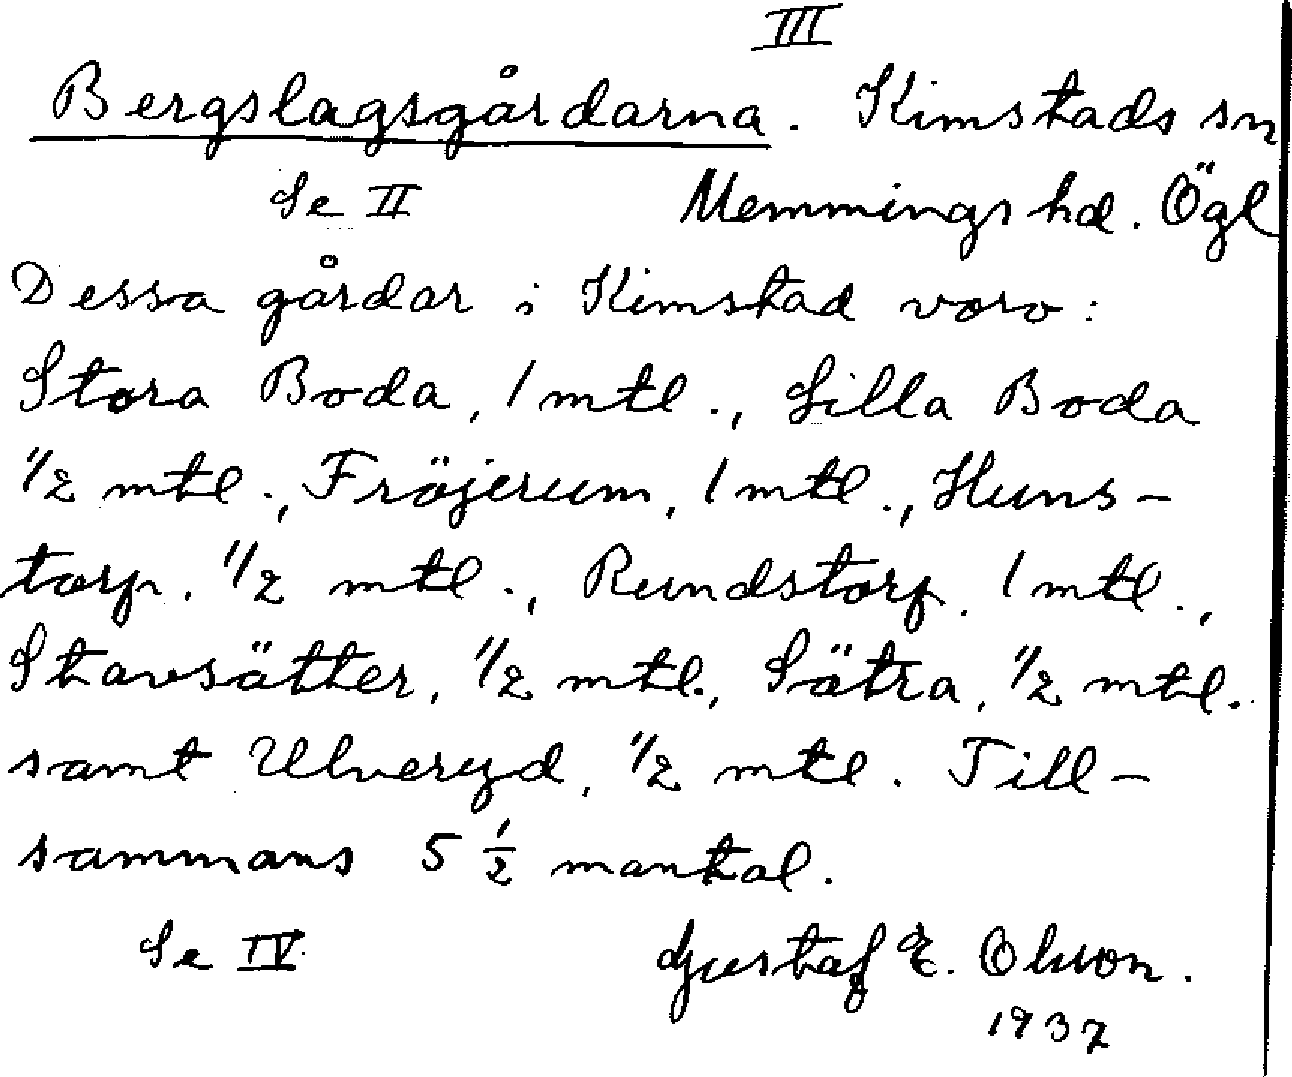 III
Bergslagsgårdarna. Kimstads sn
Se II Memmings hd. Ögl
Dessa gårdar i Kimstad voro:
Stora Boda, 1 mtl., Lilla Boda
1/2 mtl., Fröjerum, 1 mtl., Huns-
torp, 1/2 mtl., Rundstorp, 1 mtl.,
Stavsätter, 1/2 mtl., Sätra, 1/2 mtl.
samt Ulveryd, 1/2 mtl. Till-
sammans 5 1/2 mantal.
Se IV Gustaf E. Olsson.
1937